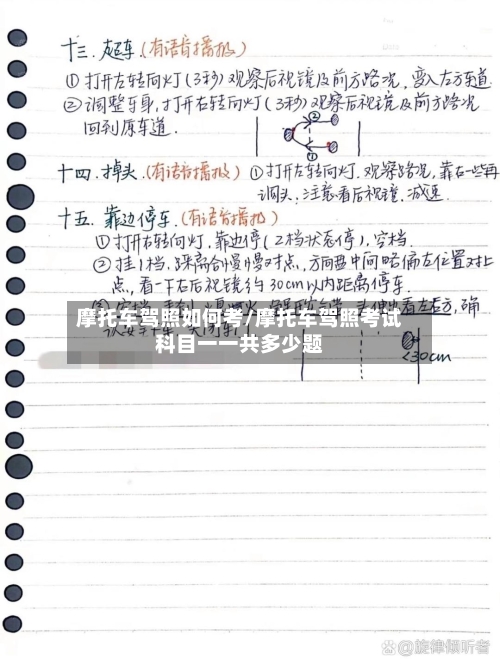 十三. 超车.(有语音播报)
① 打开左转向灯(3秒)观察后视镜及前方路况, 变入左方车道
② 调整车身, 打开右转向灯(3秒)观察后视镜及前方路况
回到原车道.
②
①
十四. 掉头.(有语音播报) ① 打开左转向灯. 观察路况, 靠左一些再
调头, 注意看后视镜, 减速.
十五. 靠边停车.(有语音播报)
① 打开右转向灯, 靠边停(2档状态停), 空档.
② 挂1档, 踩离合慢慢对点, 方向盘中间略偏左位置对上
点, 看一下右后视镜约30cm以内距离停车.
③ 空档
看左方, 确
摩托车驾照如何考/摩托车驾照考试
科目一一共多少题
<30cm
@旋律倾听者